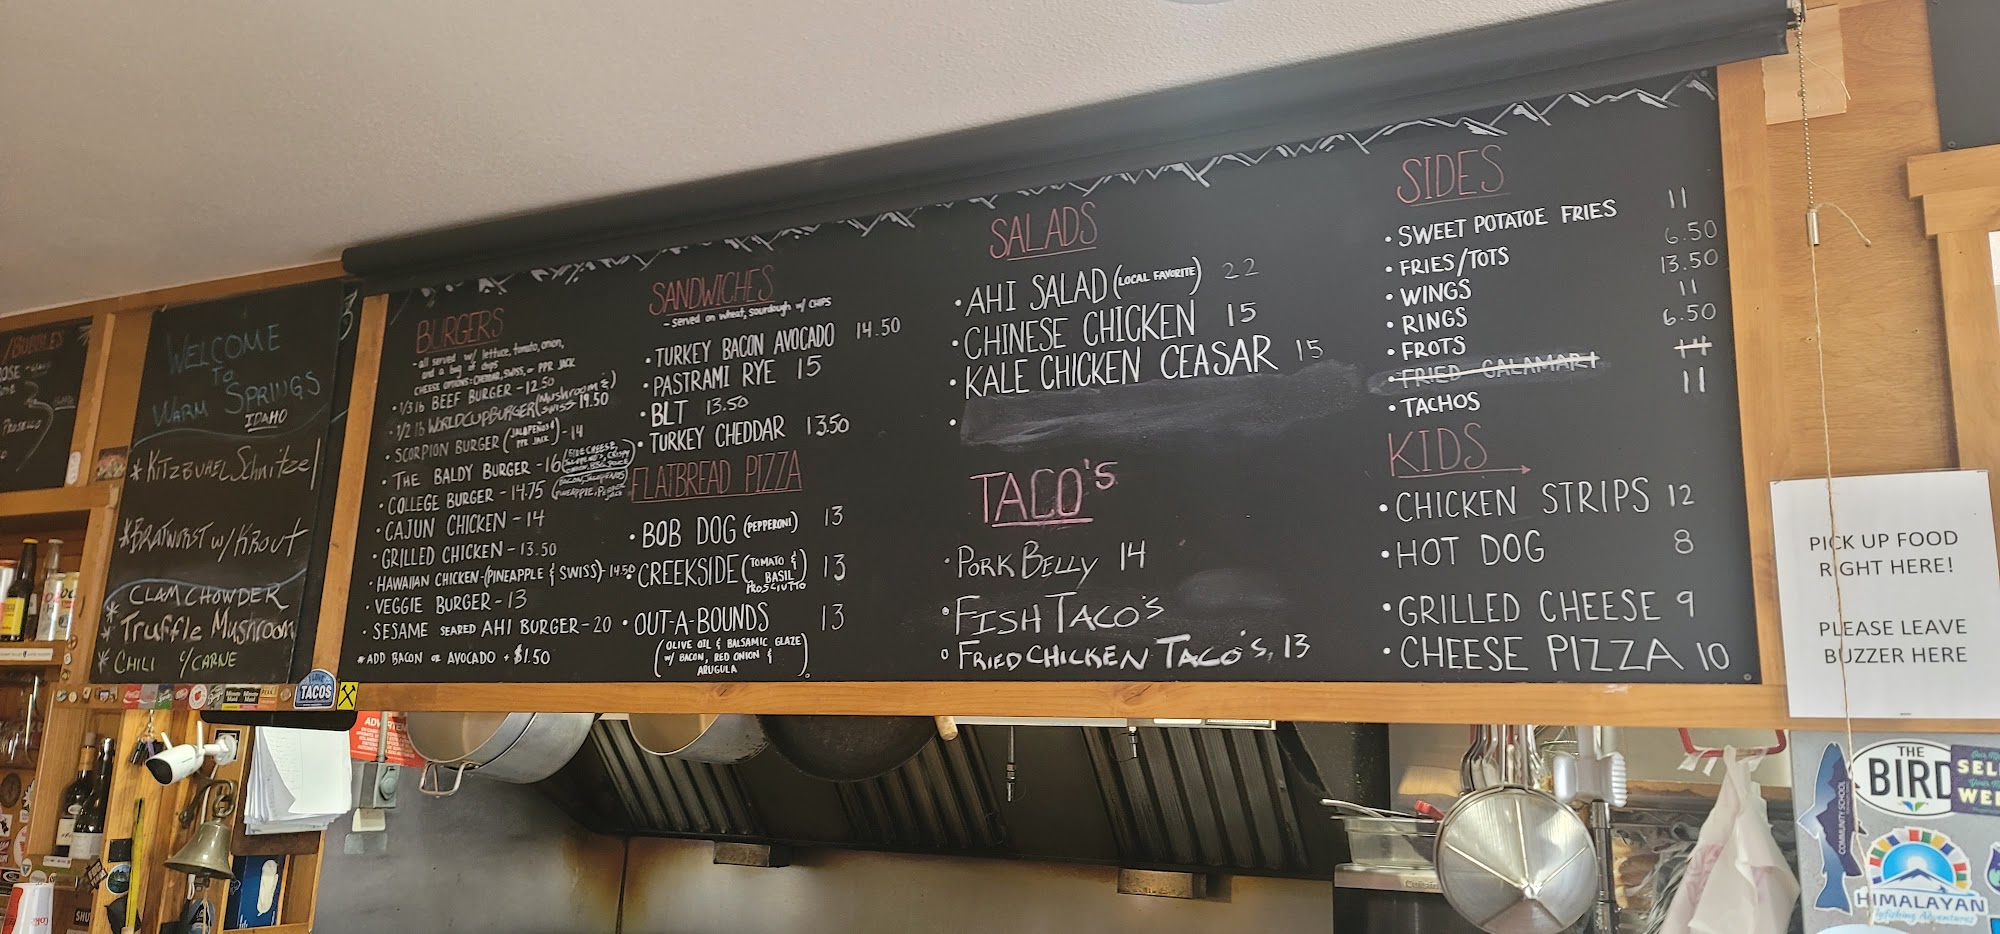 /BUBBLES
WELCOME
TO
WARM SPRINGS
IDAHO
* KITZBUHEL Schnitzel
* BRATWURST w/ KROUT
CLAM CHOWDER
* Truffle Mushroom
* CHILI c/CARNE
BURGERS
- all served w/ lettuce, tomato, onion,
and a bag of chips
CHEESE OPTIONS: CHEDDAR, SWISS, or PPR JACK
• 1/3 lb BEEF BURGER - 12.50
• 1/2 lb WORLDCUP BURGER (Mushroom & SWISS) 19.50
• SCORPION BURGER (JALAPEÑOS & PPR JACK) - 14
• THE BALDY BURGER - 16
• COLLEGE BURGER - 14.75
• CAJUN CHICKEN - 14
• GRILLED CHICKEN - 13.50
• HAWAIIAN CHICKEN - (PINEAPPLE & SWISS) - 14.50
• VEGGIE BURGER - 13
• SESAME SEARED AHI BURGER - 20
* ADD BACON or AVOCADO + $1.50
SANDWICHES
- served on wheat, sourdough w/ CHIPS
• TURKEY BACON AVOCADO 14.50
• PASTRAMI RYE 15
• BLT 13.50
• TURKEY CHEDDAR 13.50
FLATBREAD PIZZA
• BOB DOG (PEPPERONI) 13
• CREEKSIDE (TOMATO & BASIL PROSCIUTTO) 13
• OUT-A-BOUNDS 13
(OLIVE OIL & BALSAMIC GLAZE
w/ BACON, RED ONION &
ARUGULA)
SALADS
• AHI SALAD (LOCAL FAVORITE) 22
• CHINESE CHICKEN 15
• KALE CHICKEN CEASAR 15
•
TACO'S
• PORK BELLY 14
• FISH TACO'S
• FRIED CHICKEN TACO'S, 13
SIDES
• SWEET POTATOE FRIES 11
• FRIES/TOTS 6.50
• WINGS 13.50
• RINGS 11
• FROTS 6.50
• FRIED CALAMARI 14
• TACHOS 11
KIDS
• CHICKEN STRIPS 12
• HOT DOG 8
• GRILLED CHEESE 9
• CHEESE PIZZA 10
PICK UP FOOD
RIGHT HERE!
PLEASE LEAVE
BUZZER HERE
I LOVE
TACOS
THE
BIRD
COMMUNITY SCHOOL
HIMALAYAN